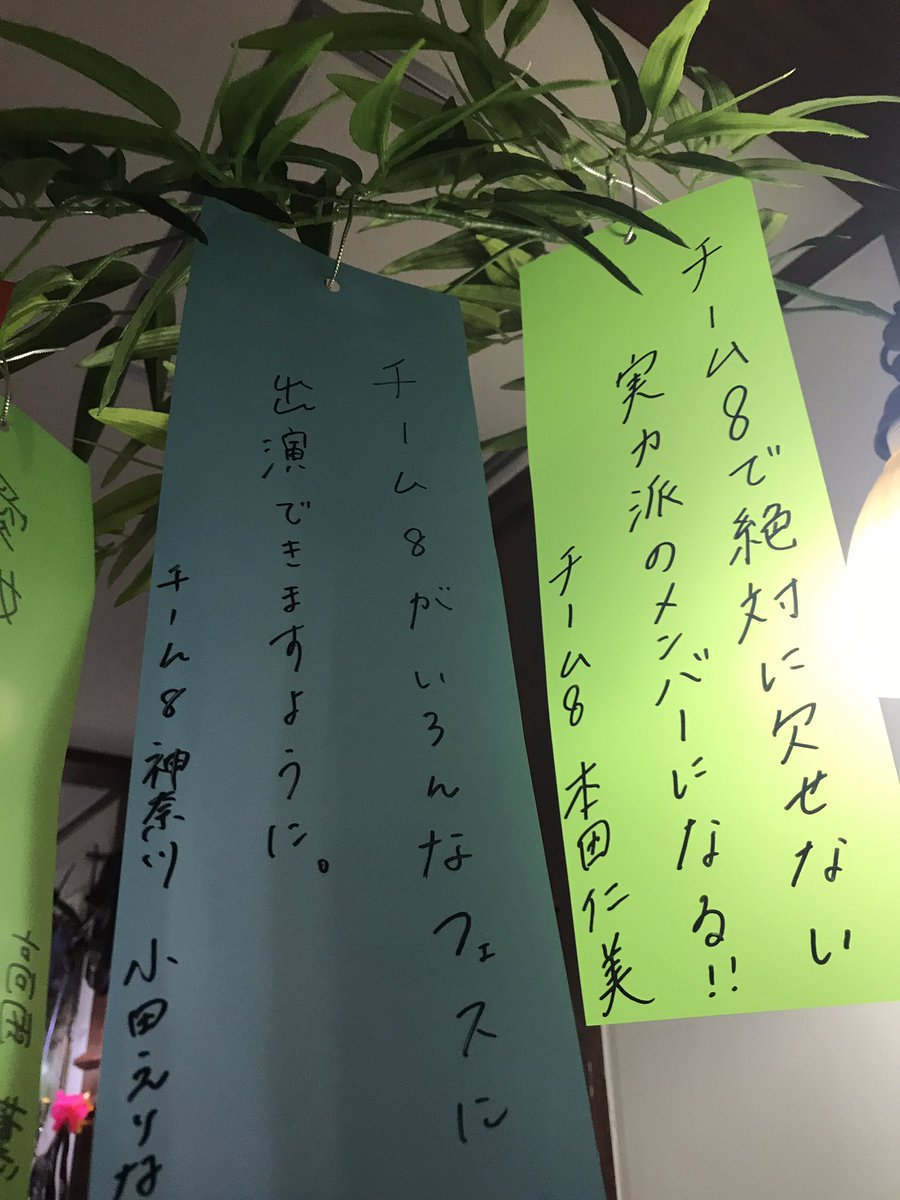 チーム8で絶対に欠せない
実力派のメンバーになる!!
チーム8 本田仁美
チーム8がいろんなフェスに
出演できますように。
チーム8 神奈川 小田えりな